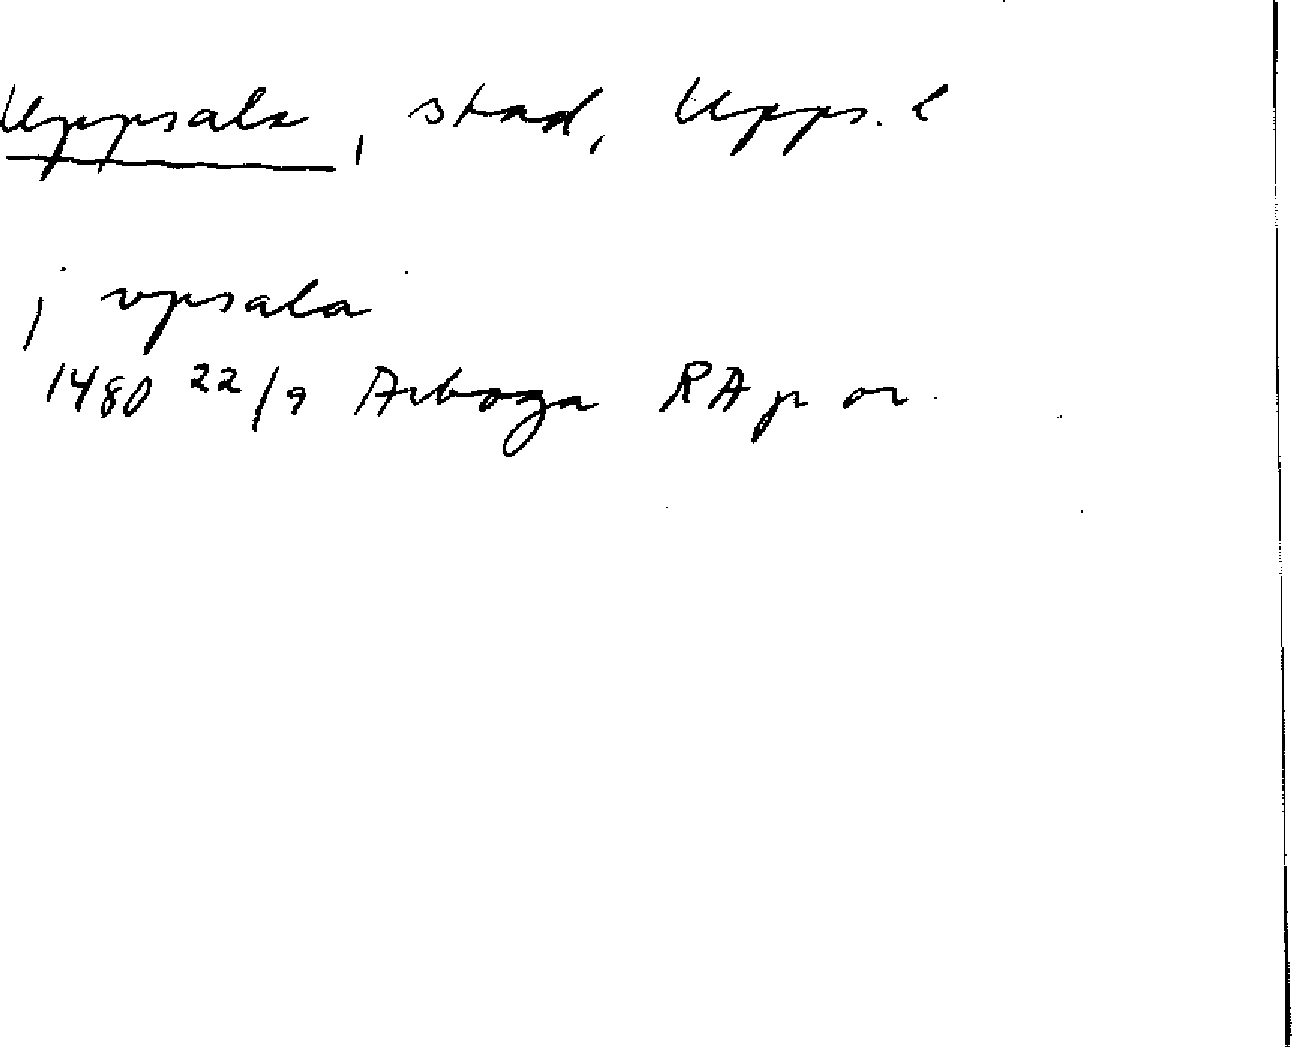 Uppsala, stad, Upps. l
j vpsala
1480 22/9 Arboga RAp or